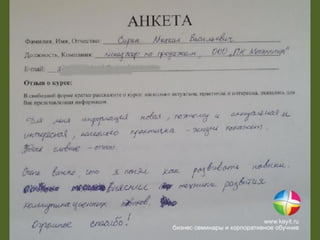 АНКЕТА
Фамилия, Имя, Отчество: Сорок Михаил Васильевич
Должность, Компания: менеджер по продажам, ООО „ПК
E-mail:
Отзыв о курсе:
В свободной форме кратко расскажите о курсе: насколько актуальна, практична и интересна, оказалась для
Вас представленная информация.
Для меня информация новая, поэтому и актуальная и
интересная, насколько практична - жизнь покажет.
Одной словно -
Очень важно, что я понял как развивать навыки.
техники развития
коммуникационных
Огромное спасибо!
www.kayit.ru
бизнес семинары и корпоративное обучение